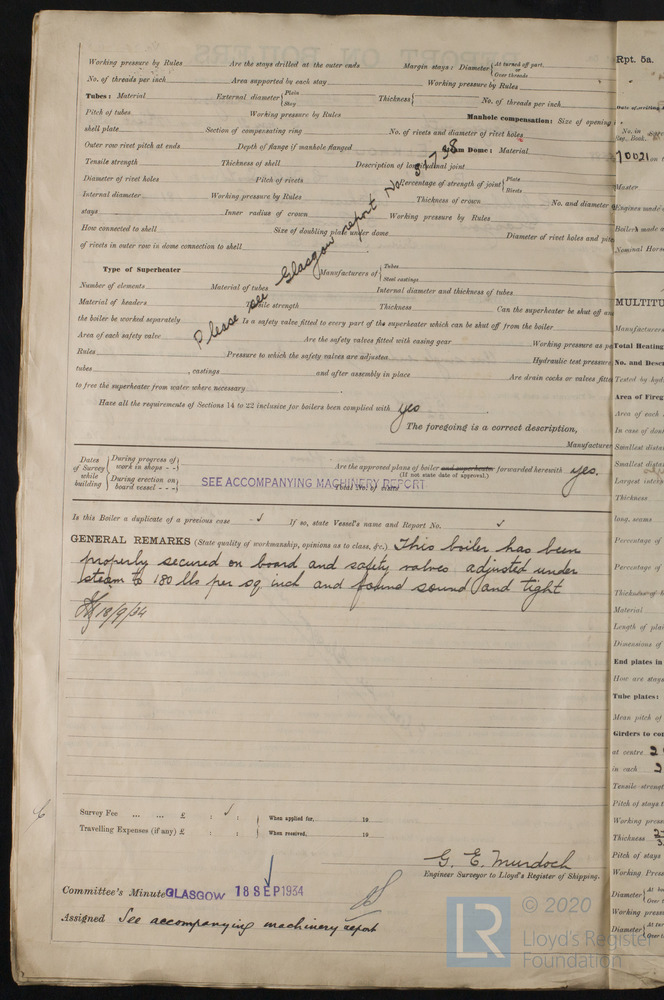 Working pressure by Rules Are the stays drilled at the outer ends Margin stays: Diameter { At turned off part. Over threads
No. of threads per inch Area supported by each stay Working pressure by Rules
Tubes: Material External diameter { Plain Stay Thickness { No. of threads per inch
Pitch of tubes Working pressure by Rules Manhole compensation: Size of opening
shell plate Section of compensating ring No. of rivets and diameter of rivet holes
Outer row rivet pitch at ends Depth of flange if manhole flanged Steam Dome: Material
Tensile strength Thickness of shell Description of longitudinal joint
Diameter of rivet holes Pitch of rivets Percentage of strength of joint { Plate Rivets
Internal diameter Working pressure by Rules Thickness of crown No. and diameter of
stays Inner radius of crown Working pressure by Rules
How connected to shell Size of doubling plate under dome Diameter of rivet holes and pitch
of rivets in outer row in dome connection to shell
Please see Glasgow report No. 51738
Type of Superheater Manufacturers of { Tubes Steel castings
Number of elements Material of tubes Internal diameter and thickness of tubes
Material of headers Tensile strength Thickness Can the superheater be shut off and
the boiler be worked separately Is a safety valve fitted to every part of the superheater which can be shut off from the boiler
Area of each safety valve Are the safety valves fitted with easing gear Working pressure as per
Rules Pressure to which the safety valves are adjusted Hydraulic test pressure
tubes , castings and after assembly in place Are drain cocks or valves fitted
to free the superheater from water where necessary
Have all the requirements of Sections 14 to 22 inclusive for boilers been complied with yes
The foregoing is a correct description,
Manufacturer
Dates of Survey while building { During progress of work in shops - - During erection on board vessel - - -
Are the approved plans of boiler and superheater forwarded herewith yes.
(If not state date of approval.)
SEE ACCOMPANYING MACHINERY REPORT
Total No. of visits
Is this Boiler a duplicate of a previous case ✓ If so, state Vessel's name and Report No. ✓
GENERAL REMARKS (State quality of workmanship, opinions as to class, &c.) This boiler has been
properly secured on board and safety valves adjusted under
steam to 180 lbs per sq inch and found sound and tight
18/9/34
Survey Fee ... ... £ : ✓ : When applied for, 19
Travelling Expenses (if any) £ : : When received, 19
G. E. Murdoch
Engineer Surveyor to Lloyd's Register of Shipping.
Committee's Minute GLASGOW 18 SEP 1934
Assigned See accompanying machinery report
Rpt. 5a.
No. in Reg. Book.
70021 on
Master
Engines made
Boilers made
Nominal Horse
MULTITU
Manufacturers
Total Heating
No. and Descr
Tested by hyd
Area of Fireg
Area of each
In case of don
Smallest dista
Smallest dista
Largest intern
Thickness
long. seams
Percentage of
Percentage of
Thickness of
Material
Length of plai
Dimensions of
End plates in
How are stays
Tube plates:
Mean pitch of
Girders to com
at centre 2
in each
Tensile strengt
Pitch of stays t
Working press
Thickness
Pitch of stays
Working Press
Diameter { At Over
Working press
Diameter { At tur Over
LR
© 2020
Lloyd's Register
Foundation